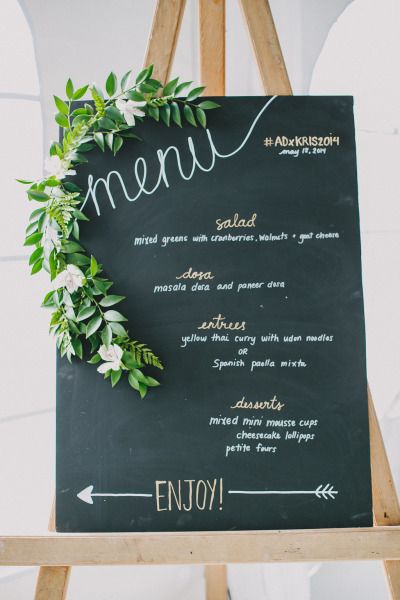 menu
#ADxKRIS2014
may 18, 2014
salad
mixed greens with cranberries, walnuts + goat cheese
dosa
masala dosa and paneer dosa
entrees
yellow thai curry with udon noodles
OR
Spanish paella mixta
desserts
mixed mini mousse cups
cheesecake lollipops
petite fours
ENJOY!